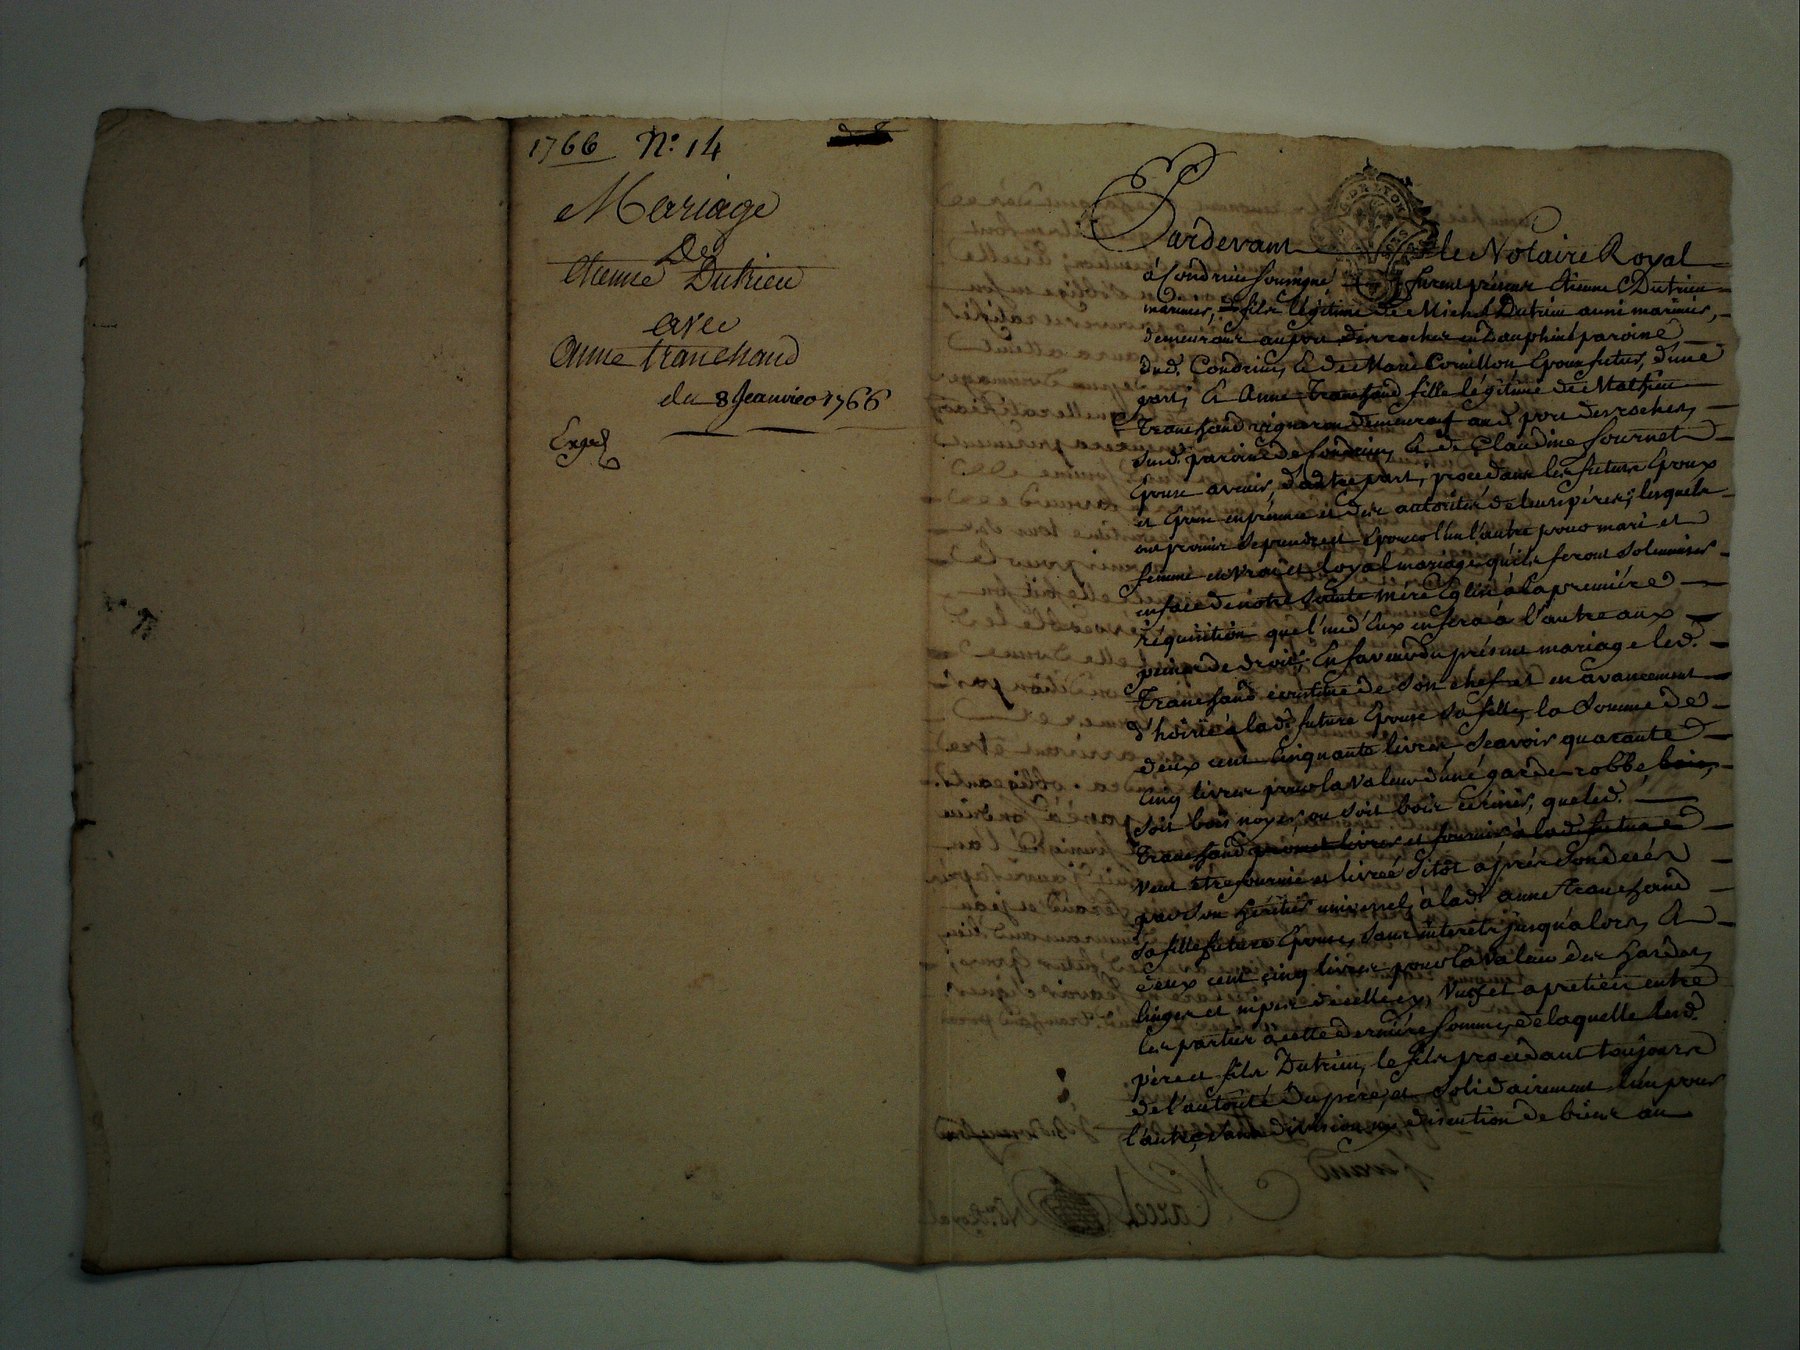 1766 N.º 14
Mariage
De
etienne Dutrieu
avec
Anne tranchand
du 8 Jeanvier 1766
Exped
Pardevant le Notaire Royal
à Condrieu soussigné furent présens Etienne Dutrieu
marinier, fils légitime de Michel Dutrieu aussi marinier,
demeurant au port des roches en Dauphiné paroisse
dud. Condrieu, & de Marie Cornillon Epoux futur, d'une
part, & Anne tranchand fille légitime de Mathieu
tranchand vigneron demeurant aud. port des roches,
susd. paroisse de Condrieu, & de Claudine fournet
Epouse avenir, d'autre part, procedant les futurs Epoux
et Epouse en présence et des autorités de leurs pères; lesquels
ont promis se prendre et Epouser l'un l'autre pour mari et
femme en vrai et loyal mariage qu'ils feront solemniser
en face de notre Sainte mère Eglise à la première
réquisition que l'un d'Eux en fera à l'autre aux
peines de droit; En faveur du présent mariage led.
tranchand constitue de son chef et en avancement
d'hoirie à lad. future Epouse sa fille, la somme de
deux cent cinquante livres, Sçavoir quarante
cinq livres pour la valeur d'une garde-robbe bois,
soit bois noyer, ou soit bois cerisier, que led.
tranchand promet livrer et fournir à lad. future
veut être fournie et livrée sitôt après son decès
par son héritier universel, à lad. anne tranchand
sa fille future Epouse, sans intérêts jusqu'alors, &
deux cent cinq livres pour la valeur des hardes,
linges et nipes d'icelle, vus et apretiés entre
les parties à cette dernière somme, de laquelle lesd.
père et fils Dutrieu, le fils procedant toujours
de l'autorité du père, et solidairement l'un pour
l'autre, sans division ny discution de biens au